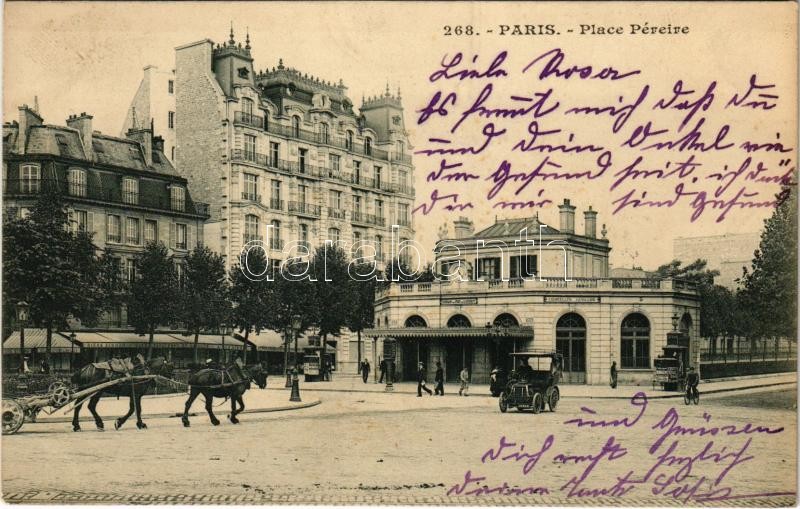 268. - PARIS. - Place Péreire
Liebe Rosa
Es freut mich daß du
und dein Onkel wie
der Gesund seit. ich
dir mir sind Gesund
darabanth
und Grüssen
dich recht herzlich
deine Tante Sofi